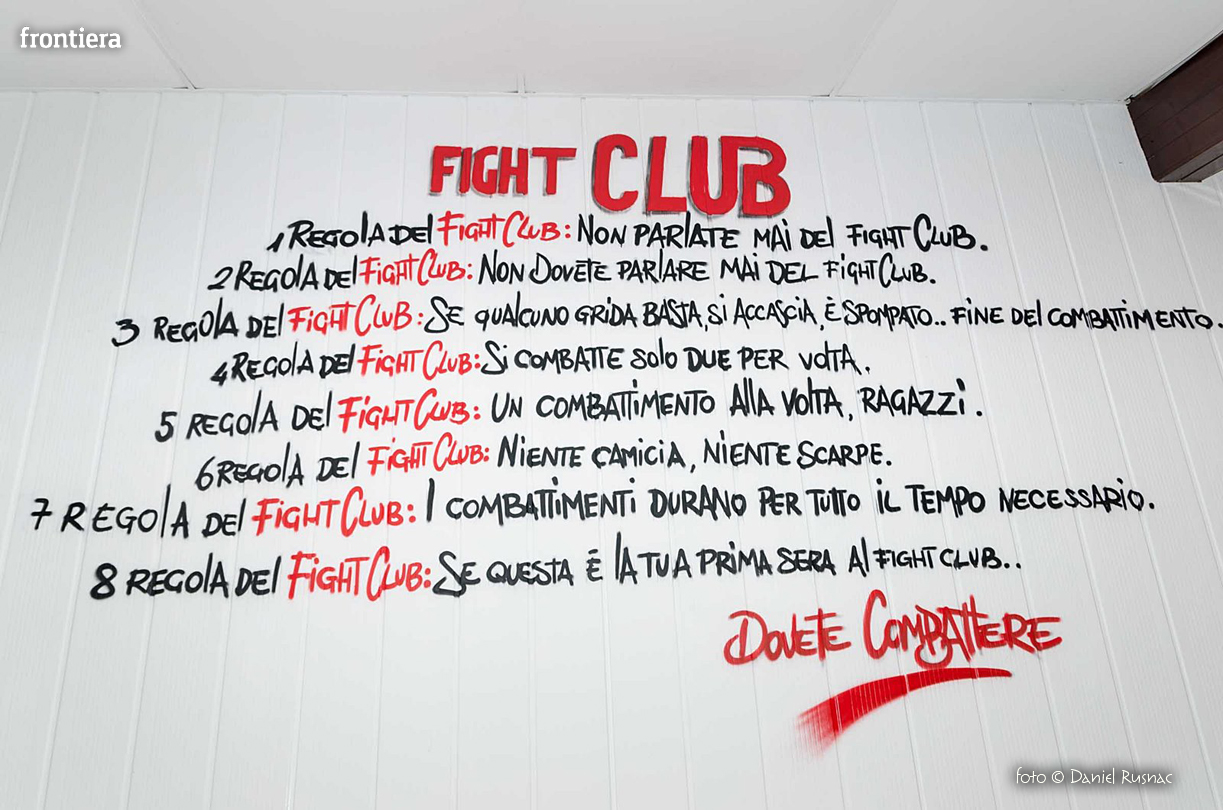 frontiera
FIGHT CLUB
1 REGOLA DEL FIGHT CLUB: NON PARLATE MAI DEL FIGHT CLUB.
2 REGOLA DEL FIGHT CLUB: NON DOVETE PARLARE MAI DEL FIGHT CLUB.
3 REGOLA DEL FIGHT CLUB: SE QUALCUNO GRIDA BASTA, SI ACCASCIA, È SPOMPATO.. FINE DEL COMBATTIMENTO.
4 REGOLA DEL FIGHT CLUB: SI COMBATTE SOLO DUE PER VOLTA.
5 REGOLA DEL FIGHT CLUB: UN COMBATTIMENTO ALLA VOLTA, RAGAZZI.
6 REGOLA DEL FIGHT CLUB: NIENTE CAMICIA, NIENTE SCARPE.
7 REGOLA DEL FIGHT CLUB: I COMBATTIMENTI DURANO PER TUTTO IL TEMPO NECESSARIO.
8 REGOLA DEL FIGHT CLUB: SE QUESTA È LA TUA PRIMA SERA AL FIGHT CLUB..
DOVETE COMBATTERE
foto © Daniel Rusnac